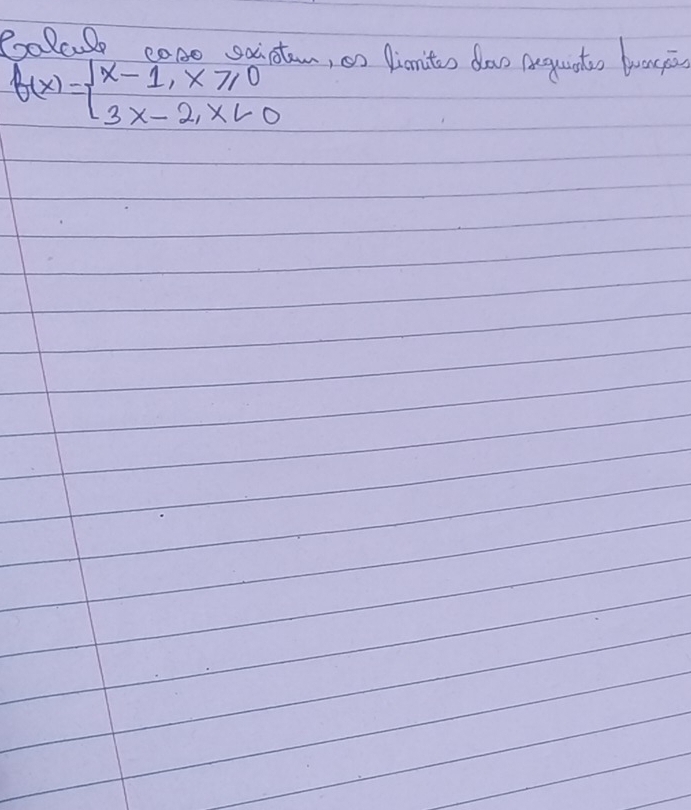 Calcule caso existem, os limites das seguintes funções
f(x) = { x - 1, x ⩾ 0
3x - 2, x < 0